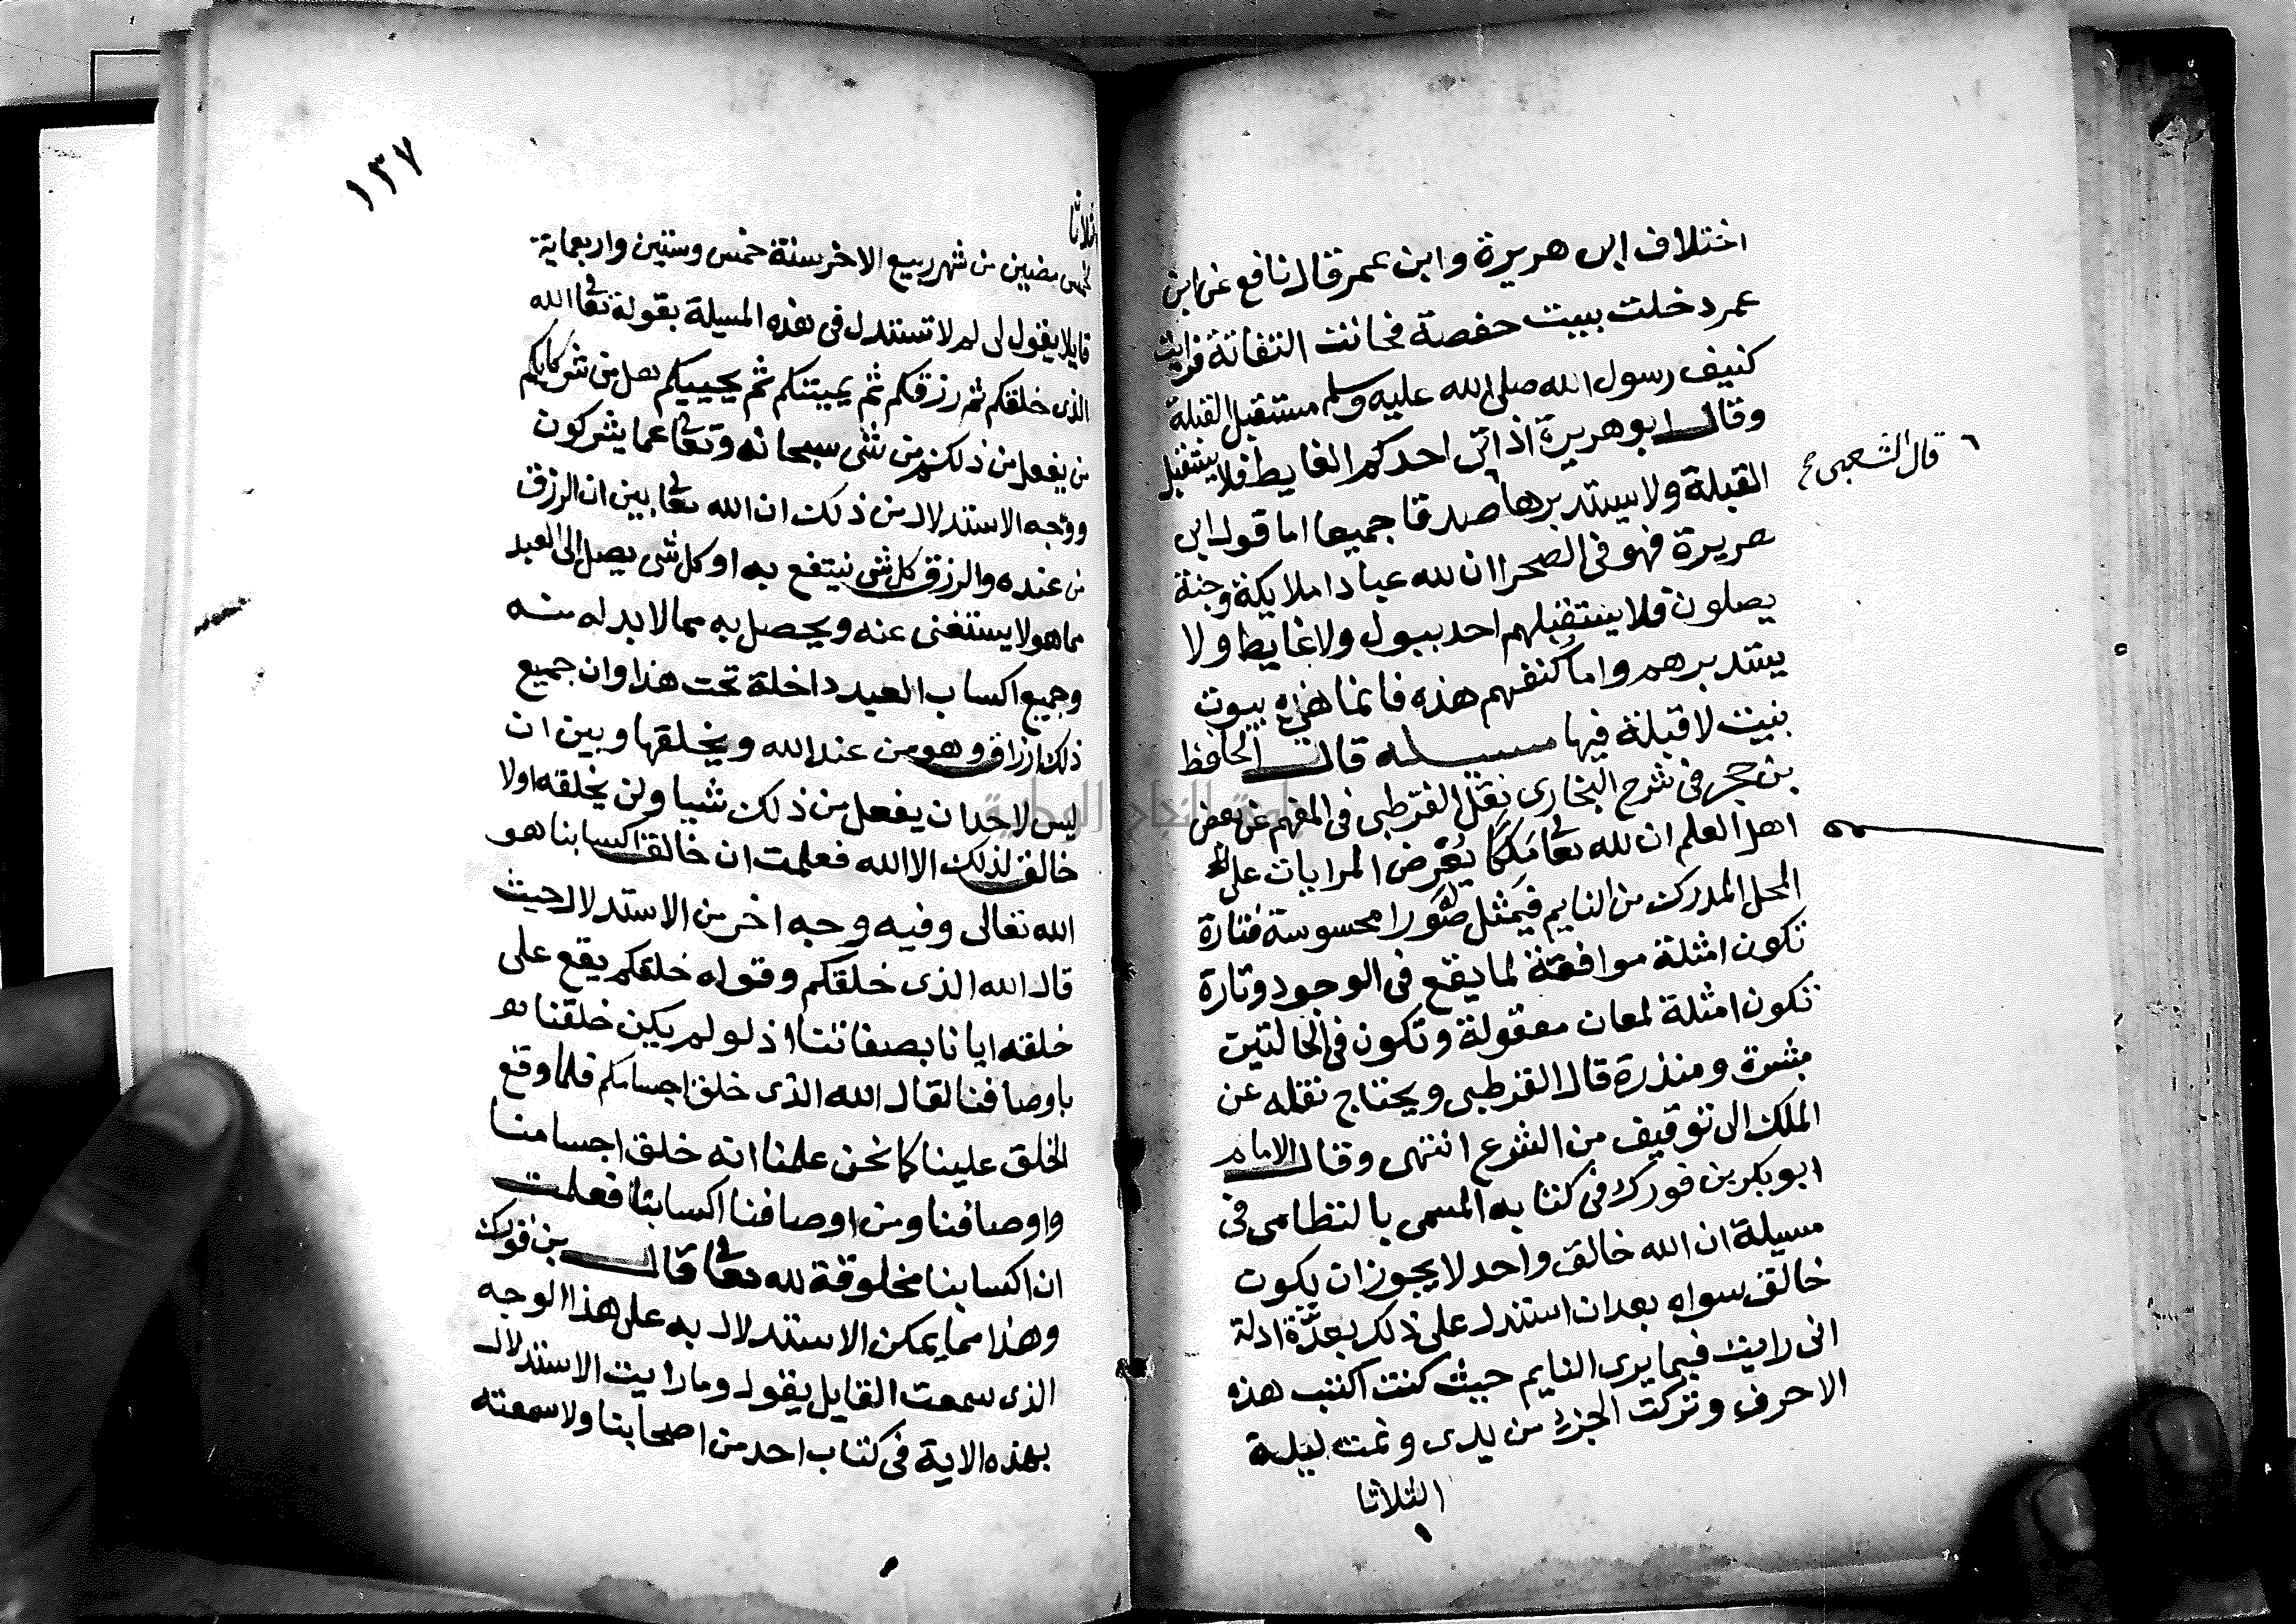 اختلاف ابى هريرة وابن عمر قال نافع عن ابن
عمر دخلت بيت حفصة فحانت التفاتة فرايت
كنيف رسول الله صلى الله عليه وسلم مستقبل القبلة
وقال ابو هريرة اذا اتى احدكم الغايط فلا يستقبل
القبلة ولا يستدبرها صدقا جميعا اما قول ابى
٦ قال الشعبى صح
هريرة فهو فى الصحرا ان لله عبادا ملايكة وجنة
يصلون فلا يستقبلهم احد ببول ولا غايط ولا
يستدبرهم واما كنفهم هذه فانما هى بيوت
بنيت لا قبلة فيها مسيله قال الحافظ
بن حجر فى شرح البخارى نقل القرطبى فى المفهم عن بعض
اهل العلم ان لله تعا ملكا يعرض المرايات على
المحل المدرك من النايم فيمثل صورا محسوسة فتارة
تكون امثلة موافقة لما يقع فى الوجود وتارة
تكون امثلة لمعان معقولة وتكون فى الحالتين
مبشرة ومنذرة قال القرطبى ويحتاج نقله عن
الملك الى توقيف من الشرع انتهى وقال الامام
ابو بكر بن فورك فى كتابه المسمى بالنظامى فى
مسيلة ان الله خالق واحد لا يجوز ان يكون
خالق سواه بعد ان استدل على ذلك بعدة ادلة
انى رايت فيما يرى النايم حيث كنت اكتب هذه
الاحرف وتركت الجزء من يدى ونمت ليلة
الثلاثا
١٣٧
الثلاثا
لخمس مضين من شهر ربيع الاخر سنة خمس وستين واربعماية
قايلا يقول لى لم لا تستدل فى هذه المسيلة بقوله تعا الله
الذى خلقكم ثم رزقكم ثم يميتكم ثم يحييكم هل من شركايكم
من يفعل من ذلكم من شى سبحانه وتعا عما يشركون
ووجه الاستدلال من ذلك ان الله تعا بين ان الرزق
من عنده والرزق كل شى ينتفع به او كل شى يصل الى العبد
مما هو لا يستغنى عنه ويحصل به مما لا بد له منه
وجميع اكساب العبد داخلة تحت هذا وان جميع
ذلك ارزاق وهو من عند الله ويخلقها وبين ان
ليس لاحد ان يفعل من ذلك شييا ولن يخلقه اولا
خالق لذلك الا الله فعلمت ان خالق اكسابنا هو
الله تعالى وفيه وجه اخر من الاستدلال حيث
قال الله الذى خلقكم وقوله خلقكم يقع على
خلقه ايانا بصفاتنا اذ لو لم يكن خلقنا هو
باوصافنا لقال الله الذى خلق اجسامكم فلما وقع
الخلق علينا كما نحن علمنا انه خلق اجسامنا
واوصافنا ومن اوصافنا اكسابنا فعلمت
ان اكسابنا مخلوقة لله تعا قال بن فورك
وهذا مما يمكن الاستدلال به على هذا الوجه
الذى سمعت القايل يقول وما رايت الاستدلال
بهذه الاية فى كتاب احد من اصحابنا ولا سمعته